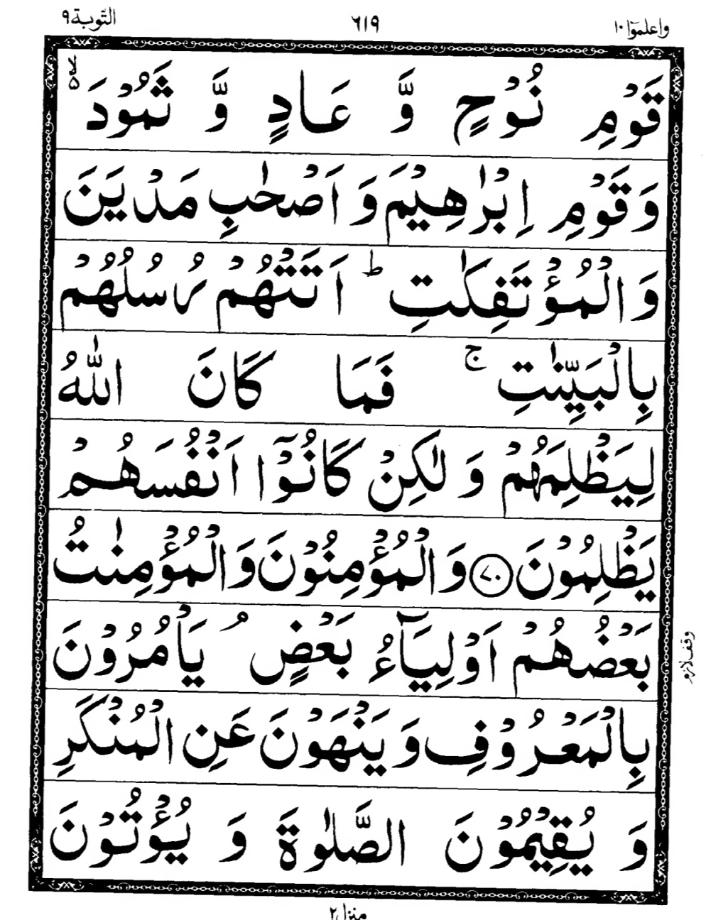 واعلموٓا١٠ ٦١٩ التّوبة٩
قَوْمِ نُوْحٍ وَّ عَادٍ وَّ ثَمُوْدَ ۙ۬
وَقَوْمِ اِبْرٰهِيْمَ وَ اَصْحٰبِ مَدْيَنَ
وَ الْمُؤْتَفِكٰتِ ؕ اَتَتْهُمْ رُسُلُهُمْ
بِالْبَيِّنٰتِ ۚ فَمَا كَانَ اللّٰهُ
لِيَظْلِمَهُمْ وَ لٰكِنْ كَانُوْٓا اَنْفُسَهُمْ
يَظْلِمُوْنَ ﴿٧٠﴾ وَ الْمُؤْمِنُوْنَ وَ الْمُؤْمِنٰتُ
بَعْضُهُمْ اَوْلِيَآءُ بَعْضٍ ۘ يَاْمُرُوْنَ
وقف لازم
بِالْمَعْرُوْفِ وَ يَنْهَوْنَ عَنِ الْمُنْكَرِ
وَ يُقِيْمُوْنَ الصَّلٰوةَ وَ يُؤْتُوْنَ
منزل٢